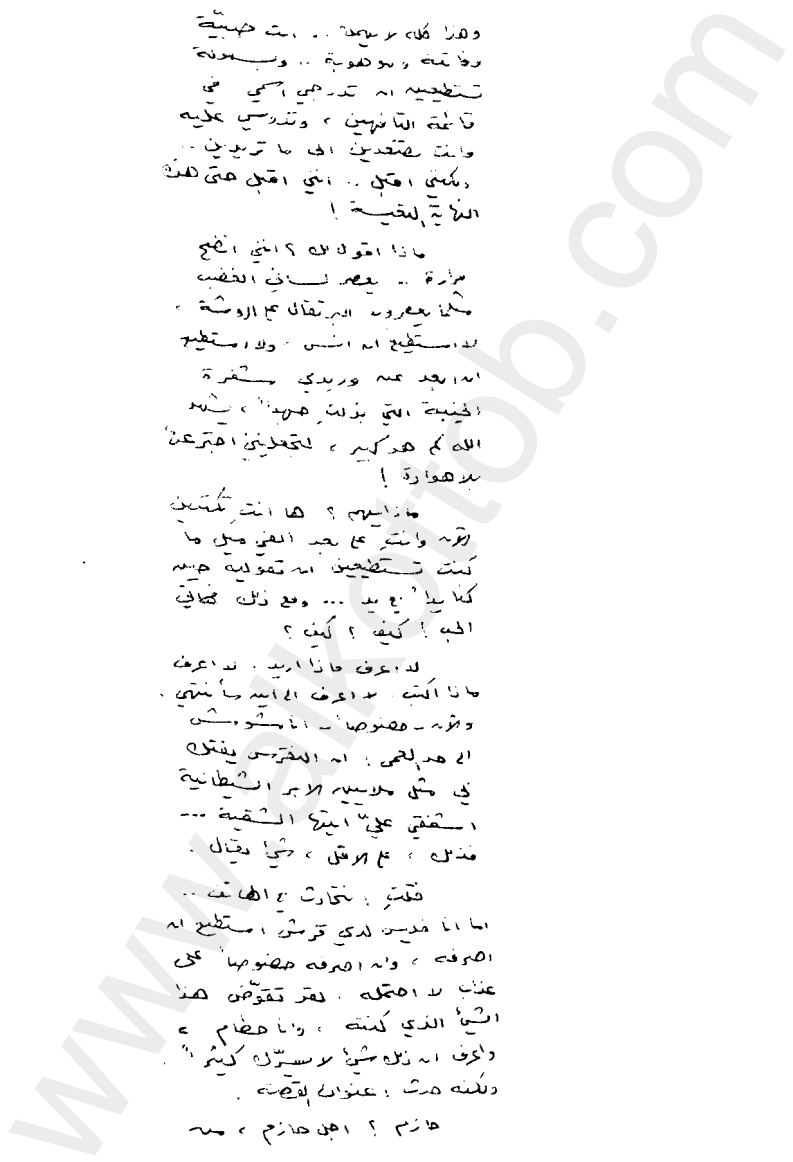 وهذا كله لا يهم .. انت صبيّة
وفاتنة وموهوبة .. وبسهولة
تستطيعين ان تدرجي اسمي في
قائمة التافهين ، وتدوسي عليه
وانت تصعدين الى ما تريدين ..
ولكنني اقبل .. انني اقبل حتى هذه
النهاية التعيسة !
ماذا اقول لك ؟ انني انضح
مرارة .. يعصر لساني الغضب
مثلما يعصرون البرتقال على الروشة ،
لا استطيع ان انسى ، ولا استطيع
ان ابعد عن وريدي شفرة
الخيبة التي بذلتِ جهداً ، يشهد
الله كم هو كبير ، لتجعليني اجترعها
بلا هوادة !
ماذا يهم ؟ ها انتِ تكتبين
الآن وانتِ على بعد الفي ميل ما
كنت تستطيعين ان تقوليه حين
كنا يداً مع يد ... ومع ذلك
الحب ! كيف ؟ كيف ؟
لا اعرف ماذا اريد . لا اعرف
ماذا اكتب . لا اعرف الى اين سأنتهي .
والآن - خصوصاً - انا مشوش
الى حد العمى : ان النقرس يفتك
بي مثل ملايين الابر الشيطانية
اشفقي عليّ ايتها الشقية ...
فذلك ، على الاقل ، شيء يقال .
قلتِ : نتحادث بالهاتف ..
اما انا فليس لدي قرش استطيع ان
اصرفه ، وان اصرفه خصوصاً على
عذاب لا احتمله . لقد تقوّض هذا
الشيء الذي كنته ، وانا حطام ،
واعرف ان ذلك شيء لا يسرّك كثيراً .
ولكنه حدث : عنوان القصة .
حازم ؟ اجل حازم ، من
www.alkottob.com